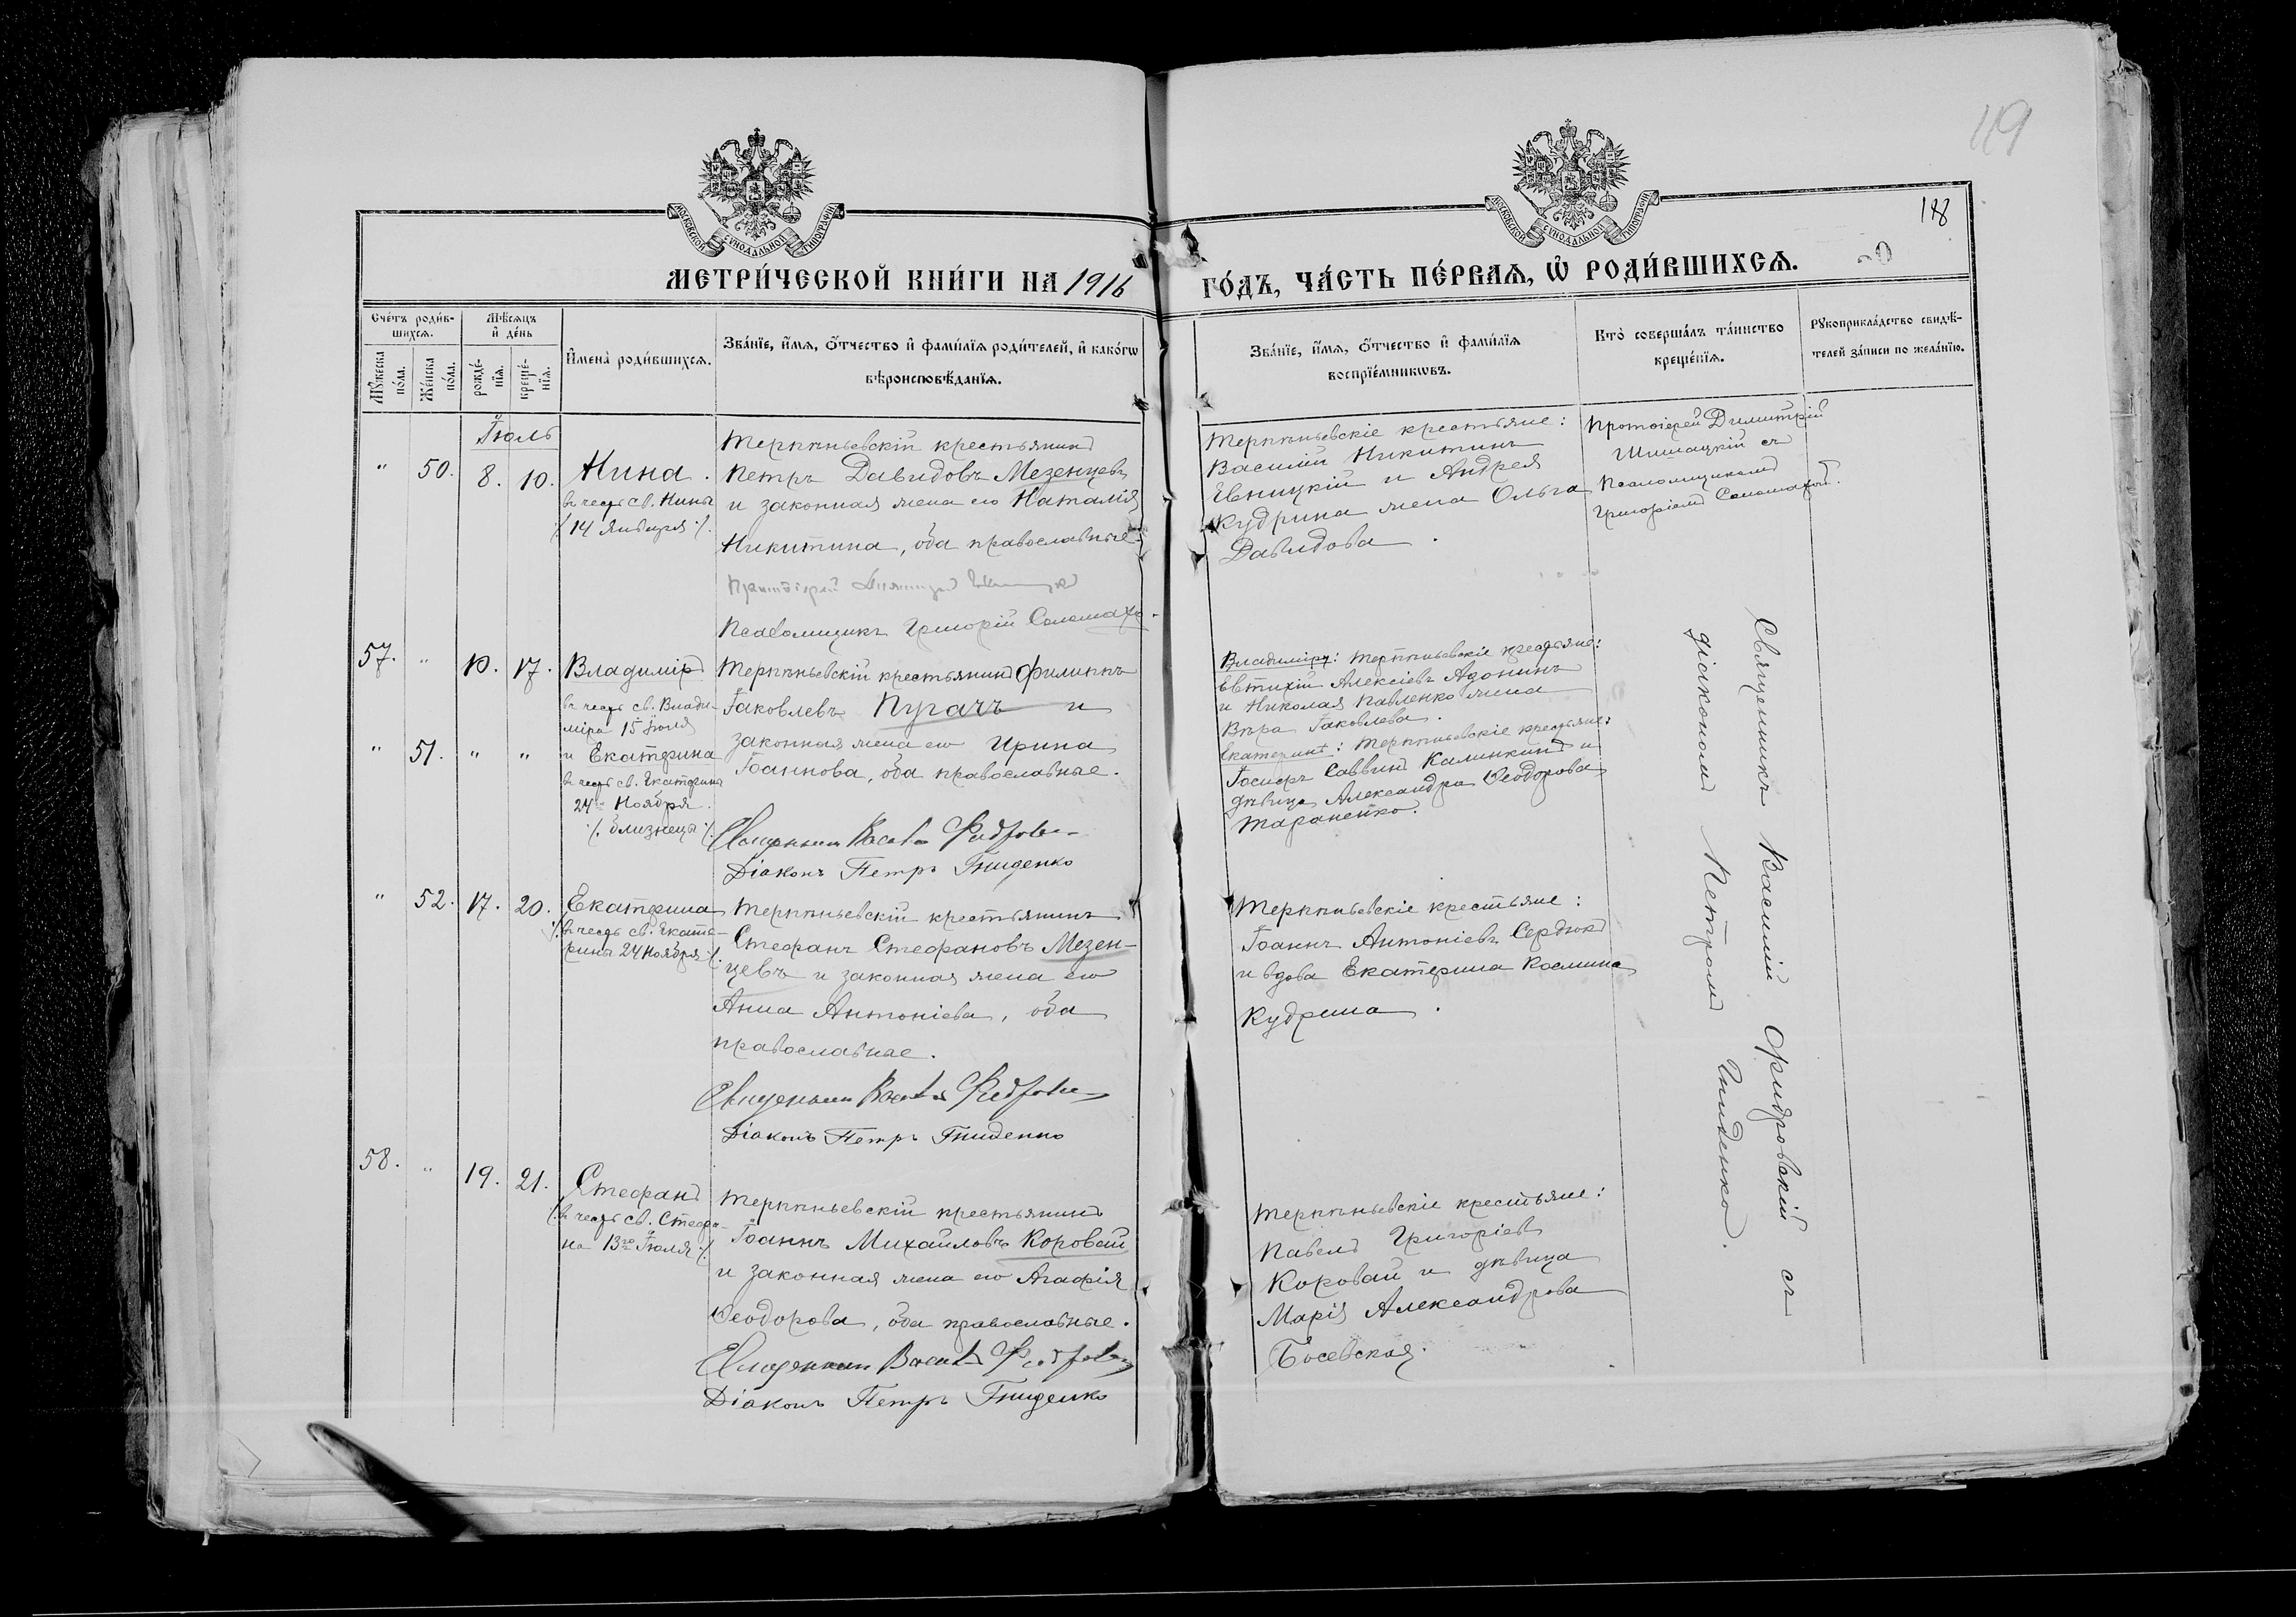 119
188
МОСКОВСКОЙ СѴНОДАЛЬНОЙ ТИПОГРАФІИ
МОСКОВСКОЙ СѴНОДАЛЬНОЙ ТИПОГРАФІИ
МЕТРИ́ЧЕСКОЙ КНИ́ГИ НА 1916
ГО́ДЪ, ЧА́СТЬ ПЕ́РВАѦ, Ѡ҆ РОДИ́ВШИХСѦ.
Сче́тъ роди́в-
шихсѧ.
Мꙋ́жеска
по́ла.
Же́нска
по́ла.
Мѣ́сѧцъ
и҆ де́нь
рожде́-
нїѧ.
креще́-
нїѧ.
И҆мена̀ роди́вшихсѧ.
Зва́нїе, и҆́мѧ, ѻ҆́тчество и҆ фами́лїѧ роди́телей, и҆ како́гѡ
вѣроисповѣ́данїѧ.
Зва́нїе, и҆́мѧ, ѻ҆́тчество и҆ фами́лїѧ
воспрїе́мникѡвъ.
Кто̀ соверша́лъ та́инство
креще́нїѧ.
Рꙋкоприкла́дство свидѣ́-
телей за́писи по жела́нїю.
Іюль
" 50. 8. 10.
Нина.
въ честь св. Нины
/. 14 января ./.
Терпѣньевскій крестьянинъ
Петръ Давидовъ Мезенцевъ
и законная жена его Наталія
Никитина, оба православные.
Протоіерей
Псаломщикъ Григорій Соломаха.
Терпѣньевскіе крестьяне:
Василій Никитинъ
Евницкій и Андрея
Кудрина жена Ольга
Давидова.
Протоіерей Димитрій
Шишацкій съ
Псаломщикомъ
Григоріемъ Соломахой.
57. " 10. 17.
Владиміръ
въ честь св. Влади-
міра 15 Іюля
" 51. " "
и Екатерина
въ честь св. Екатерины
24 Ноября.
/. близнецы ./.
Терпѣньевскій крестьянинъ Филиппъ
Іаковлевъ Пугачъ и
законная жена его Ирина
Іоаннова, оба православные.
Діаконъ Петръ Гниденко
Владиміру: Терпѣньевскіе крестьяне:
Евтихій Алексіевъ Адонинъ
и Николая Павленко жена
Вѣра Іаковлева.
Екатеринѣ: Терпѣньевскіе крестьяне:
Іосифъ Саввинъ Калинкинъ и
дѣвица Александра Ѳеодорова
Тараненко.
Священникъ Василій Фидровскій съ
діакономъ Петромъ Гниденко.
" 52. 17. 20.
Екатерина
/. въ честь св. Екате-
рины 24 Ноября ./.
Терпѣньевскій крестьянинъ
Стефанъ Стефановъ Мезен-
цевъ и законная жена его
Анна Антоніева, оба
православные.
Діаконъ Петръ Гниденко
Терпѣньевскіе крестьяне:
Іоаннъ Антоніевъ Сердюкъ
и вдова Екатерина Космина
Кудрина.
58. " 19. 21.
Стефанъ
/. въ честь св. Стефа-
на 13го Іюля ./.
Терпѣньевскій крестьянинъ
Іоаннъ Михаиловъ Коровай
и законная жена его Агафія
Ѳеодорова, оба православные.
Діаконъ Петръ Гниденко
Терпѣньевскіе крестьяне:
Павелъ Григоріевъ
Коровай и дѣвица
Марія Александрова
Босевская.